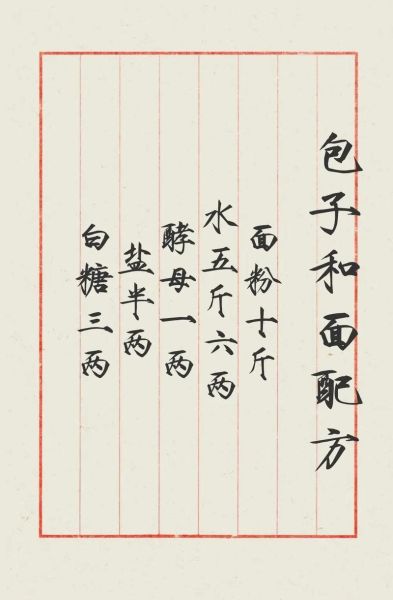 包子和面配方
面粉十斤
水五斤六两
酵母一两
盐半两
白糖三两